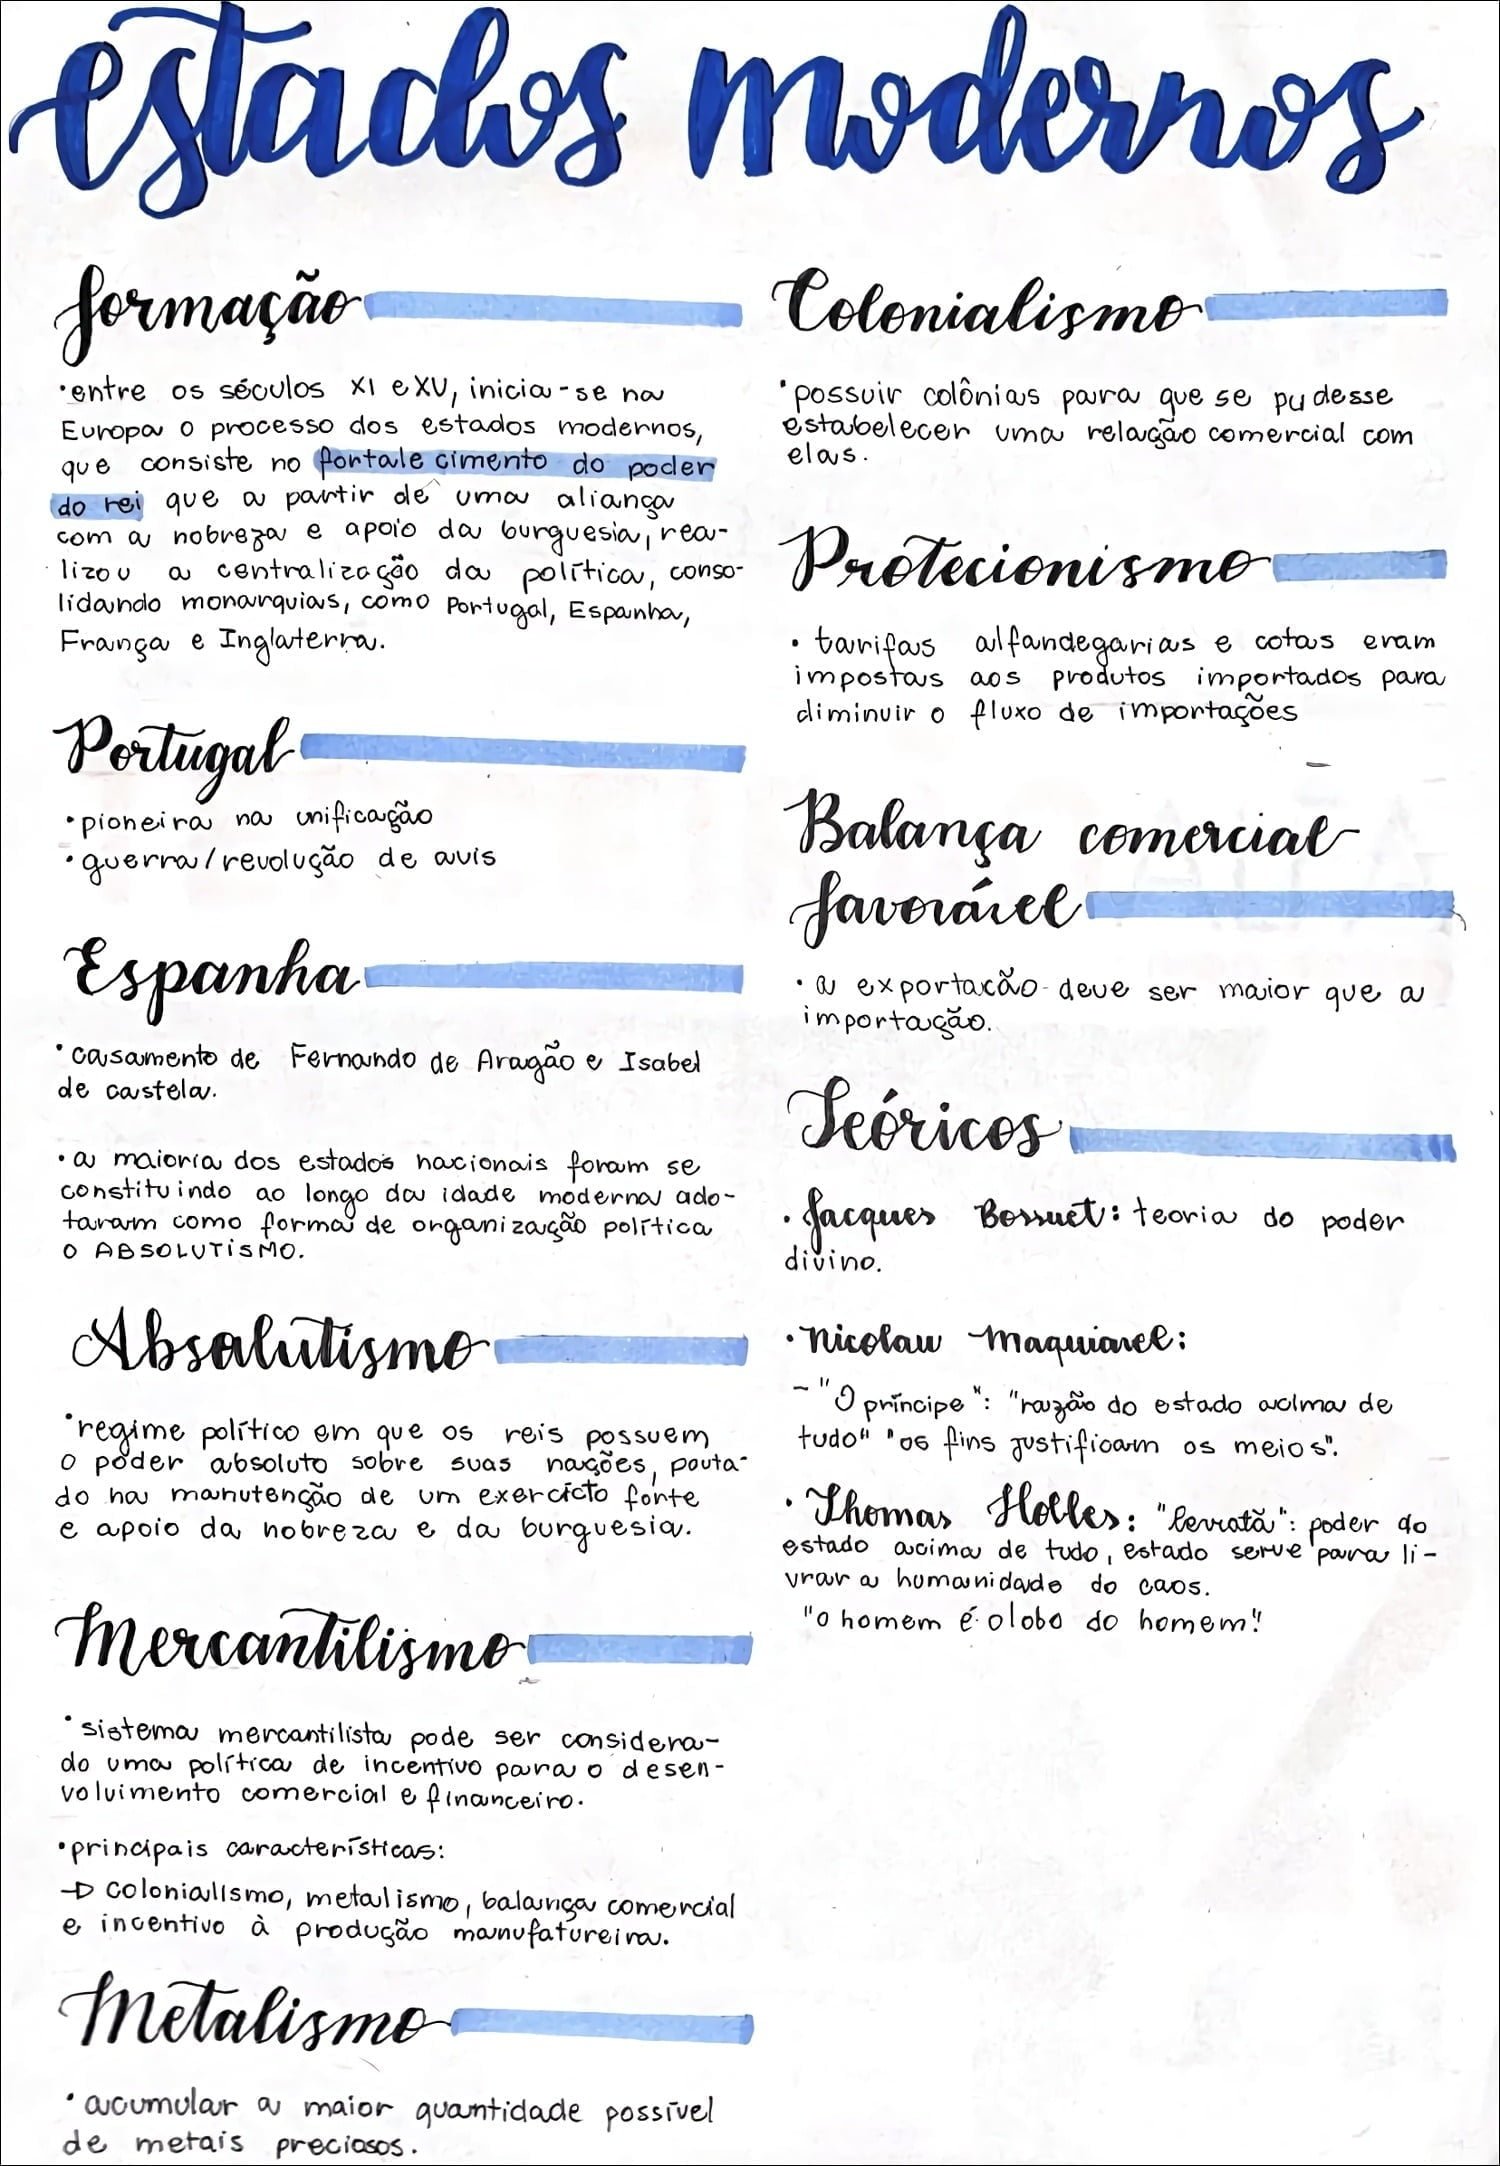 estados modernos
formação
•entre os séculos XI e XV, inicia-se na
Europa o processo dos estados modernos,
que consiste no fortalecimento do poder
do rei que a partir de uma aliança
com a nobreza e apoio da burguesia, rea-
lizou a centralização da política, conso-
lidando monarquias, como Portugal, Espanha,
França e Inglaterra.
Portugal
•pioneira na unificação
•guerra/revolução de avis
Espanha
•casamento de Fernando de Aragão e Isabel
de castela.
•a maioria dos estados nacionais foram se
constituindo ao longo da idade moderna ado-
taram como forma de organização política
o ABSOLUTISMO.
Absolutismo
•regime político em que os reis possuem
o poder absoluto sobre suas nações, pauta-
do na manutenção de um exercicto forte
e apoio da nobreza e da burguesia.
Mercantilismo
•sistema mercantilista pode ser considera-
do uma política de incentivo para o desen-
volvimento comercial e financeiro.
•principais características:
→ colonialismo, metalismo, balança comercial
e incentivo à produção manufatureira.
Metalismo
•acumular a maior quantidade possível
de metais preciosos.
Colonialismo
•possuir colônias para que se pudesse
estabelecer uma relação comercial com
elas.
Protecionismo
• tarifas alfandegarias e cotas eram
impostas aos produtos importados para
diminuir o fluxo de importações
Balança comercial
favorável
•a exportacão deve ser maior que a
importação.
Teóricos
•Jacques Bossuet: teoria do poder
divino.
•Nicolau Maquiavel:
- "O príncipe": "razão do estado acima de
tudo" "os fins justificam os meios".
•Thomas Hobbes: "leviatã": poder do
estado acima de tudo, estado serve para li-
vrar a humanidade do caos.
"o homem é o lobo do homem"